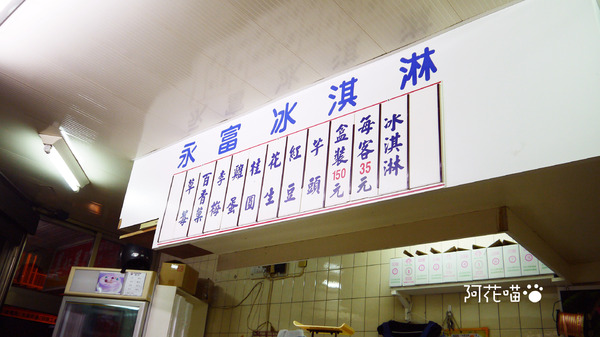 永富冰淇淋
冰淇淋
每客35元
盒裝150元
芋頭
紅豆
花生
桂圓
雞蛋
李梅
百香菓
草莓
阿花喵